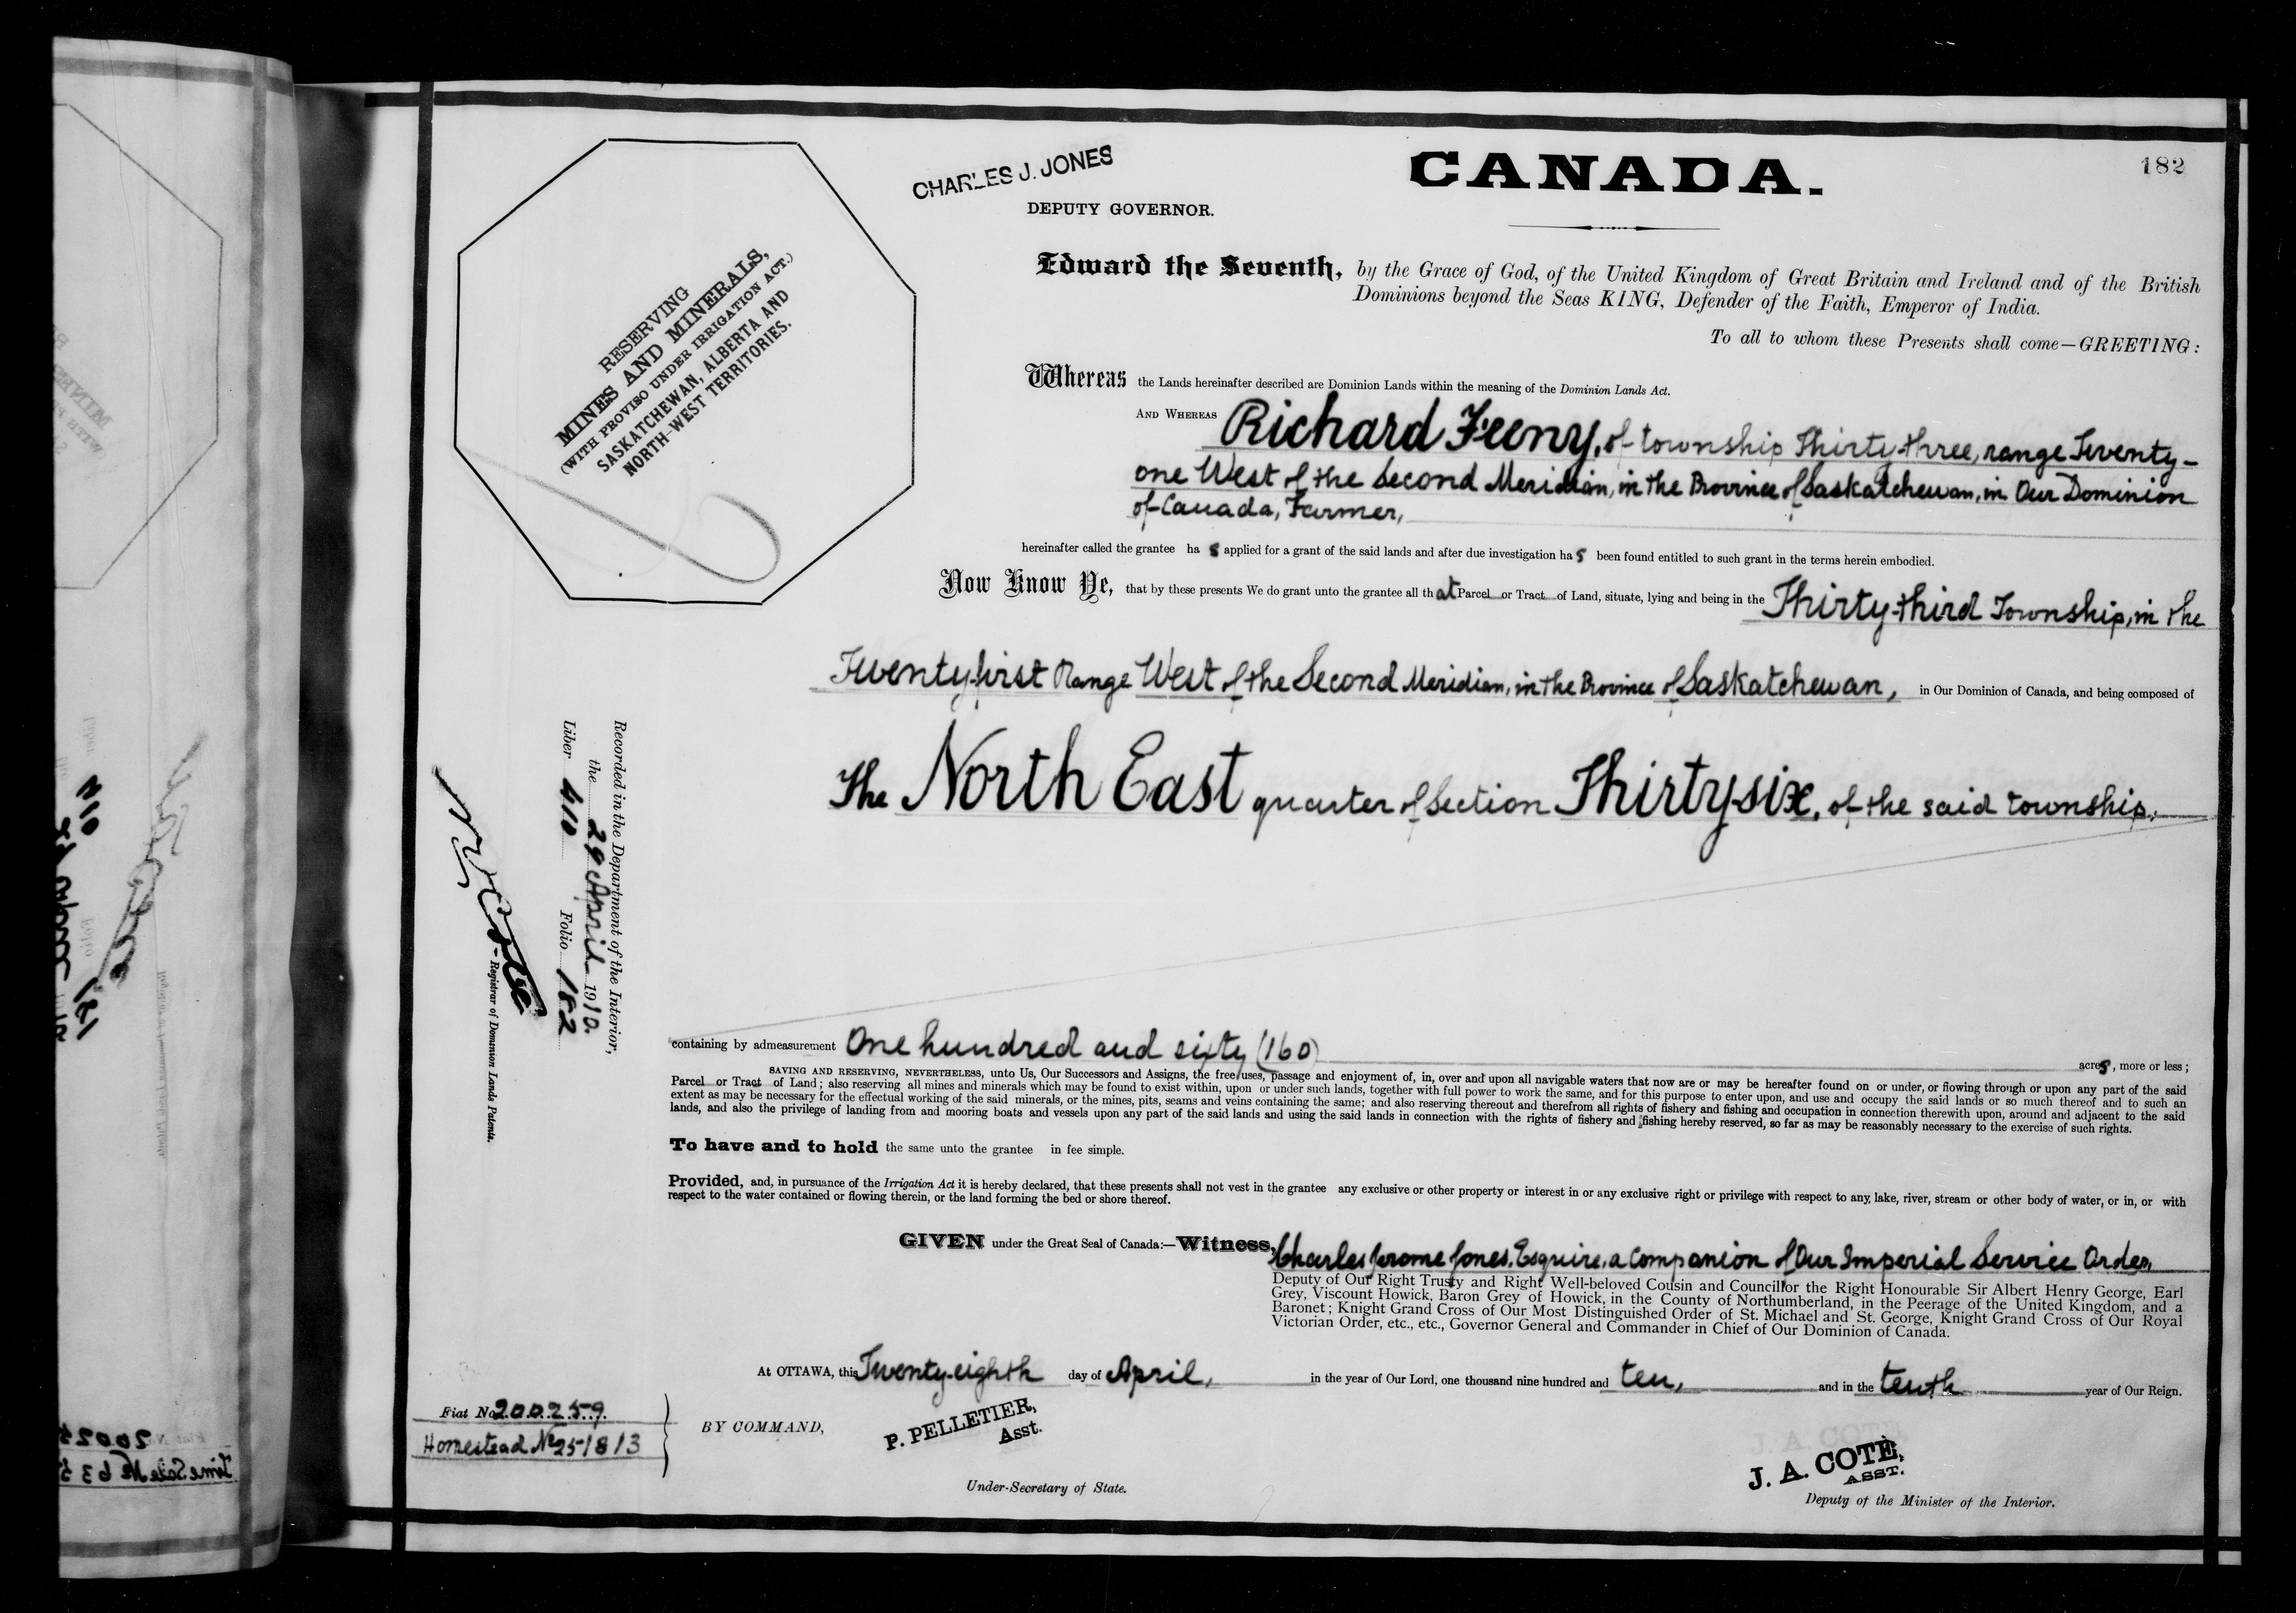 182
CHARLES J. JONES
DEPUTY GOVERNOR.
CANADA.
RESERVING
MINES AND MINERALS,
(WITH PROVISO UNDER IRRIGATION ACT.)
SASKATCHEWAN, ALBERTA AND
NORTH-WEST TERRITORIES.
Edward the Seventh, by the Grace of God, of the United Kingdom of Great Britain and Ireland and of the British
Dominions beyond the Seas KING, Defender of the Faith, Emperor of India.
To all to whom these Presents shall come—GREETING:
Whereas the Lands hereinafter described are Dominion Lands within the meaning of the Dominion Lands Act.
AND WHEREAS Richard Feeny, of township Thirty-three, range Twenty-
one West of the Second Meridian, in the Province of Saskatchewan, in Our Dominion
of Canada, Farmer,
hereinafter called the grantee has applied for a grant of the said lands and after due investigation has been found entitled to such grant in the terms herein embodied.
Now Know Ye, that by these presents We do grant unto the grantee all that Parcel or Tract of Land, situate, lying and being in the Thirty-third Township, in the
Twenty-first Range West of the Second Meridian, in the Province of Saskatchewan, in Our Dominion of Canada, and being composed of
The North East quarter of Section Thirty-six, of the said township.
Recorded in the Department of the Interior,
the 29 April 1910.
Liber 410 Folio 182
Registrar of Dominion Lands Patents.
containing by admeasurement One hundred and sixty (160) acres, more or less;
SAVING AND RESERVING, NEVERTHELESS, unto Us, Our Successors and Assigns, the free uses, passage and enjoyment of, in, over and upon all navigable waters that now are or may be hereafter found on or under, or flowing through or upon any part of the said
Parcel or Tract of Land; also reserving all mines and minerals which may be found to exist within, upon or under such lands, together with full power to work the same, and for this purpose to enter upon, and use and occupy the said lands or so much thereof and to such an
extent as may be necessary for the effectual working of the said minerals, or the mines, pits, seams and veins containing the same; and also reserving thereout and therefrom all rights of fishery and fishing and occupation in connection therewith upon, around and adjacent to the said
lands, and also the privilege of landing from and mooring boats and vessels upon any part of the said lands and using the said lands in connection with the rights of fishery and fishing hereby reserved, so far as may be reasonably necessary to the exercise of such rights.
To have and to hold the same unto the grantee in fee simple.
Provided, and, in pursuance of the Irrigation Act it is hereby declared, that these presents shall not vest in the grantee any exclusive or other property or interest in or any exclusive right or privilege with respect to any lake, river, stream or other body of water, or in, or with
respect to the water contained or flowing therein, or the land forming the bed or shore thereof.
GIVEN under the Great Seal of Canada:—Witness, Charles Jerome Jones, Esquire, a Companion of Our Imperial Service Order,
Deputy of Our Right Trusty and Right Well-beloved Cousin and Councillor the Right Honourable Sir Albert Henry George, Earl
Grey, Viscount Howick, Baron Grey of Howick, in the County of Northumberland, in the Peerage of the United Kingdom, and a
Baronet; Knight Grand Cross of Our Most Distinguished Order of St. Michael and St. George, Knight Grand Cross of Our Royal
Victorian Order, etc., etc., Governor General and Commander in Chief of Our Dominion of Canada.
At OTTAWA, this Twenty-eighth day of April, in the year of Our Lord, one thousand nine hundred and ten, and in the tenth year of Our Reign.
Fiat No 200259.
Homestead No 251813
BY COMMAND,
P. PELLETIER,
Asst.
Under-Secretary of State.
J. A. COTÉ,
ASST.
Deputy of the Minister of the Interior.